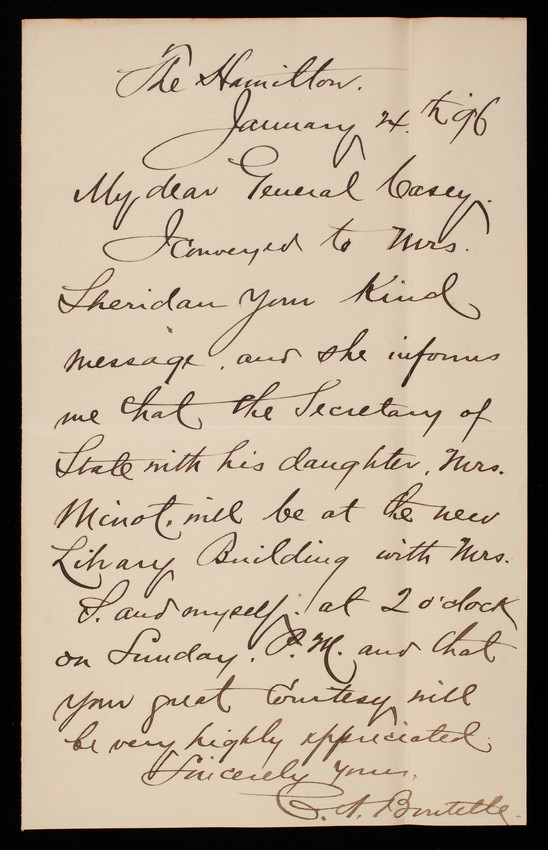 The Hamilton.
January 24.th '96
My dear General Casey.
I conveyed to Mrs.
Sheridan your kind
message, and she informs
me that the Secretary of
State with his daughter, Mrs.
Minot, will be at the new
Library Building with Mrs.
S. and myself, at 2 o'clock
on Sunday. P.M. and that
your great courtesy will
be very highly appreciated.
Sincerely yours,
C. A. Boutelle.